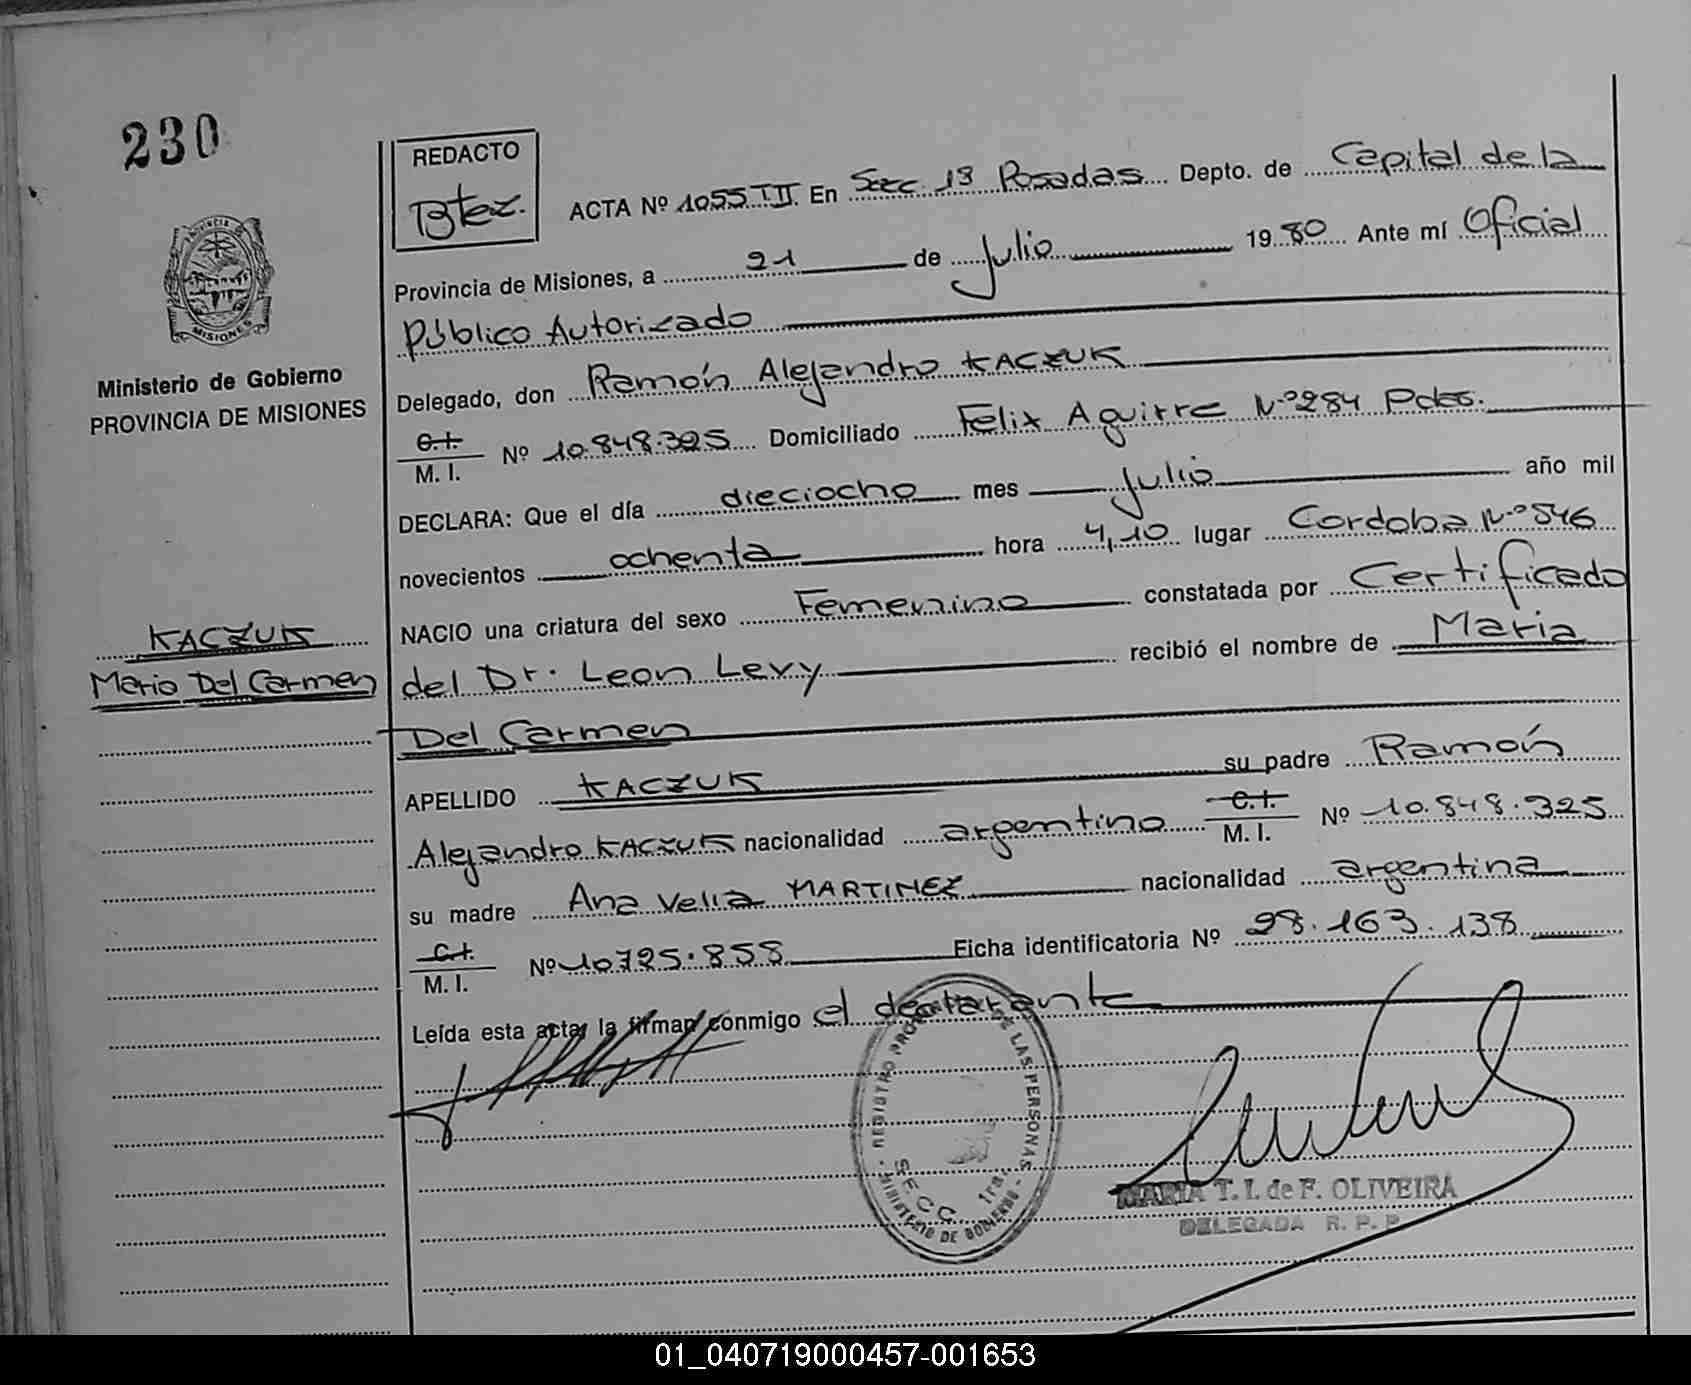 230
REDACTO
Btez.
ACTA Nº 1055 III En Secc. 13 Posadas Depto. de Capital de la
Provincia de Misiones, a 21 de Julio 1980 Ante mí Oficial
Público Autorizado
Delegado, don Ramón Alejandro KACZUK
C.I. M. I. Nº 10.848.325 Domiciliado Felix Aguirre Nº 284 Pdas.
DECLARA: Que el día dieciocho mes Julio año mil
novecientos ochenta hora 4,10 lugar Cordoba Nº 546
NACIO una criatura del sexo Femenino constatada por Certificado
del Dr. Leon Levy recibió el nombre de Maria
Del Carmen
APELLIDO KACZUK su padre Ramón
Alejandro KACZUK nacionalidad argentino C.I. M. I. Nº 10.848.325
su madre Ana Velia MARTINEZ nacionalidad argentina
C.I. M. I. Nº 10725.858 Ficha identificatoria Nº 28.163.138
Leída esta acta, la firman conmigo el declarante
PROVINCIA DE MISIONES
Ministerio de Gobierno
PROVINCIA DE MISIONES
KACZUK
Maria Del Carmen
REGISTRO PROV. DE LAS PERSONAS
SECC. 1ra.
MINISTERIO DE GOBIERNO
MARIA T. I. de F. OLIVEIRA
DELEGADA R. P. P.
01_040719000457-001653